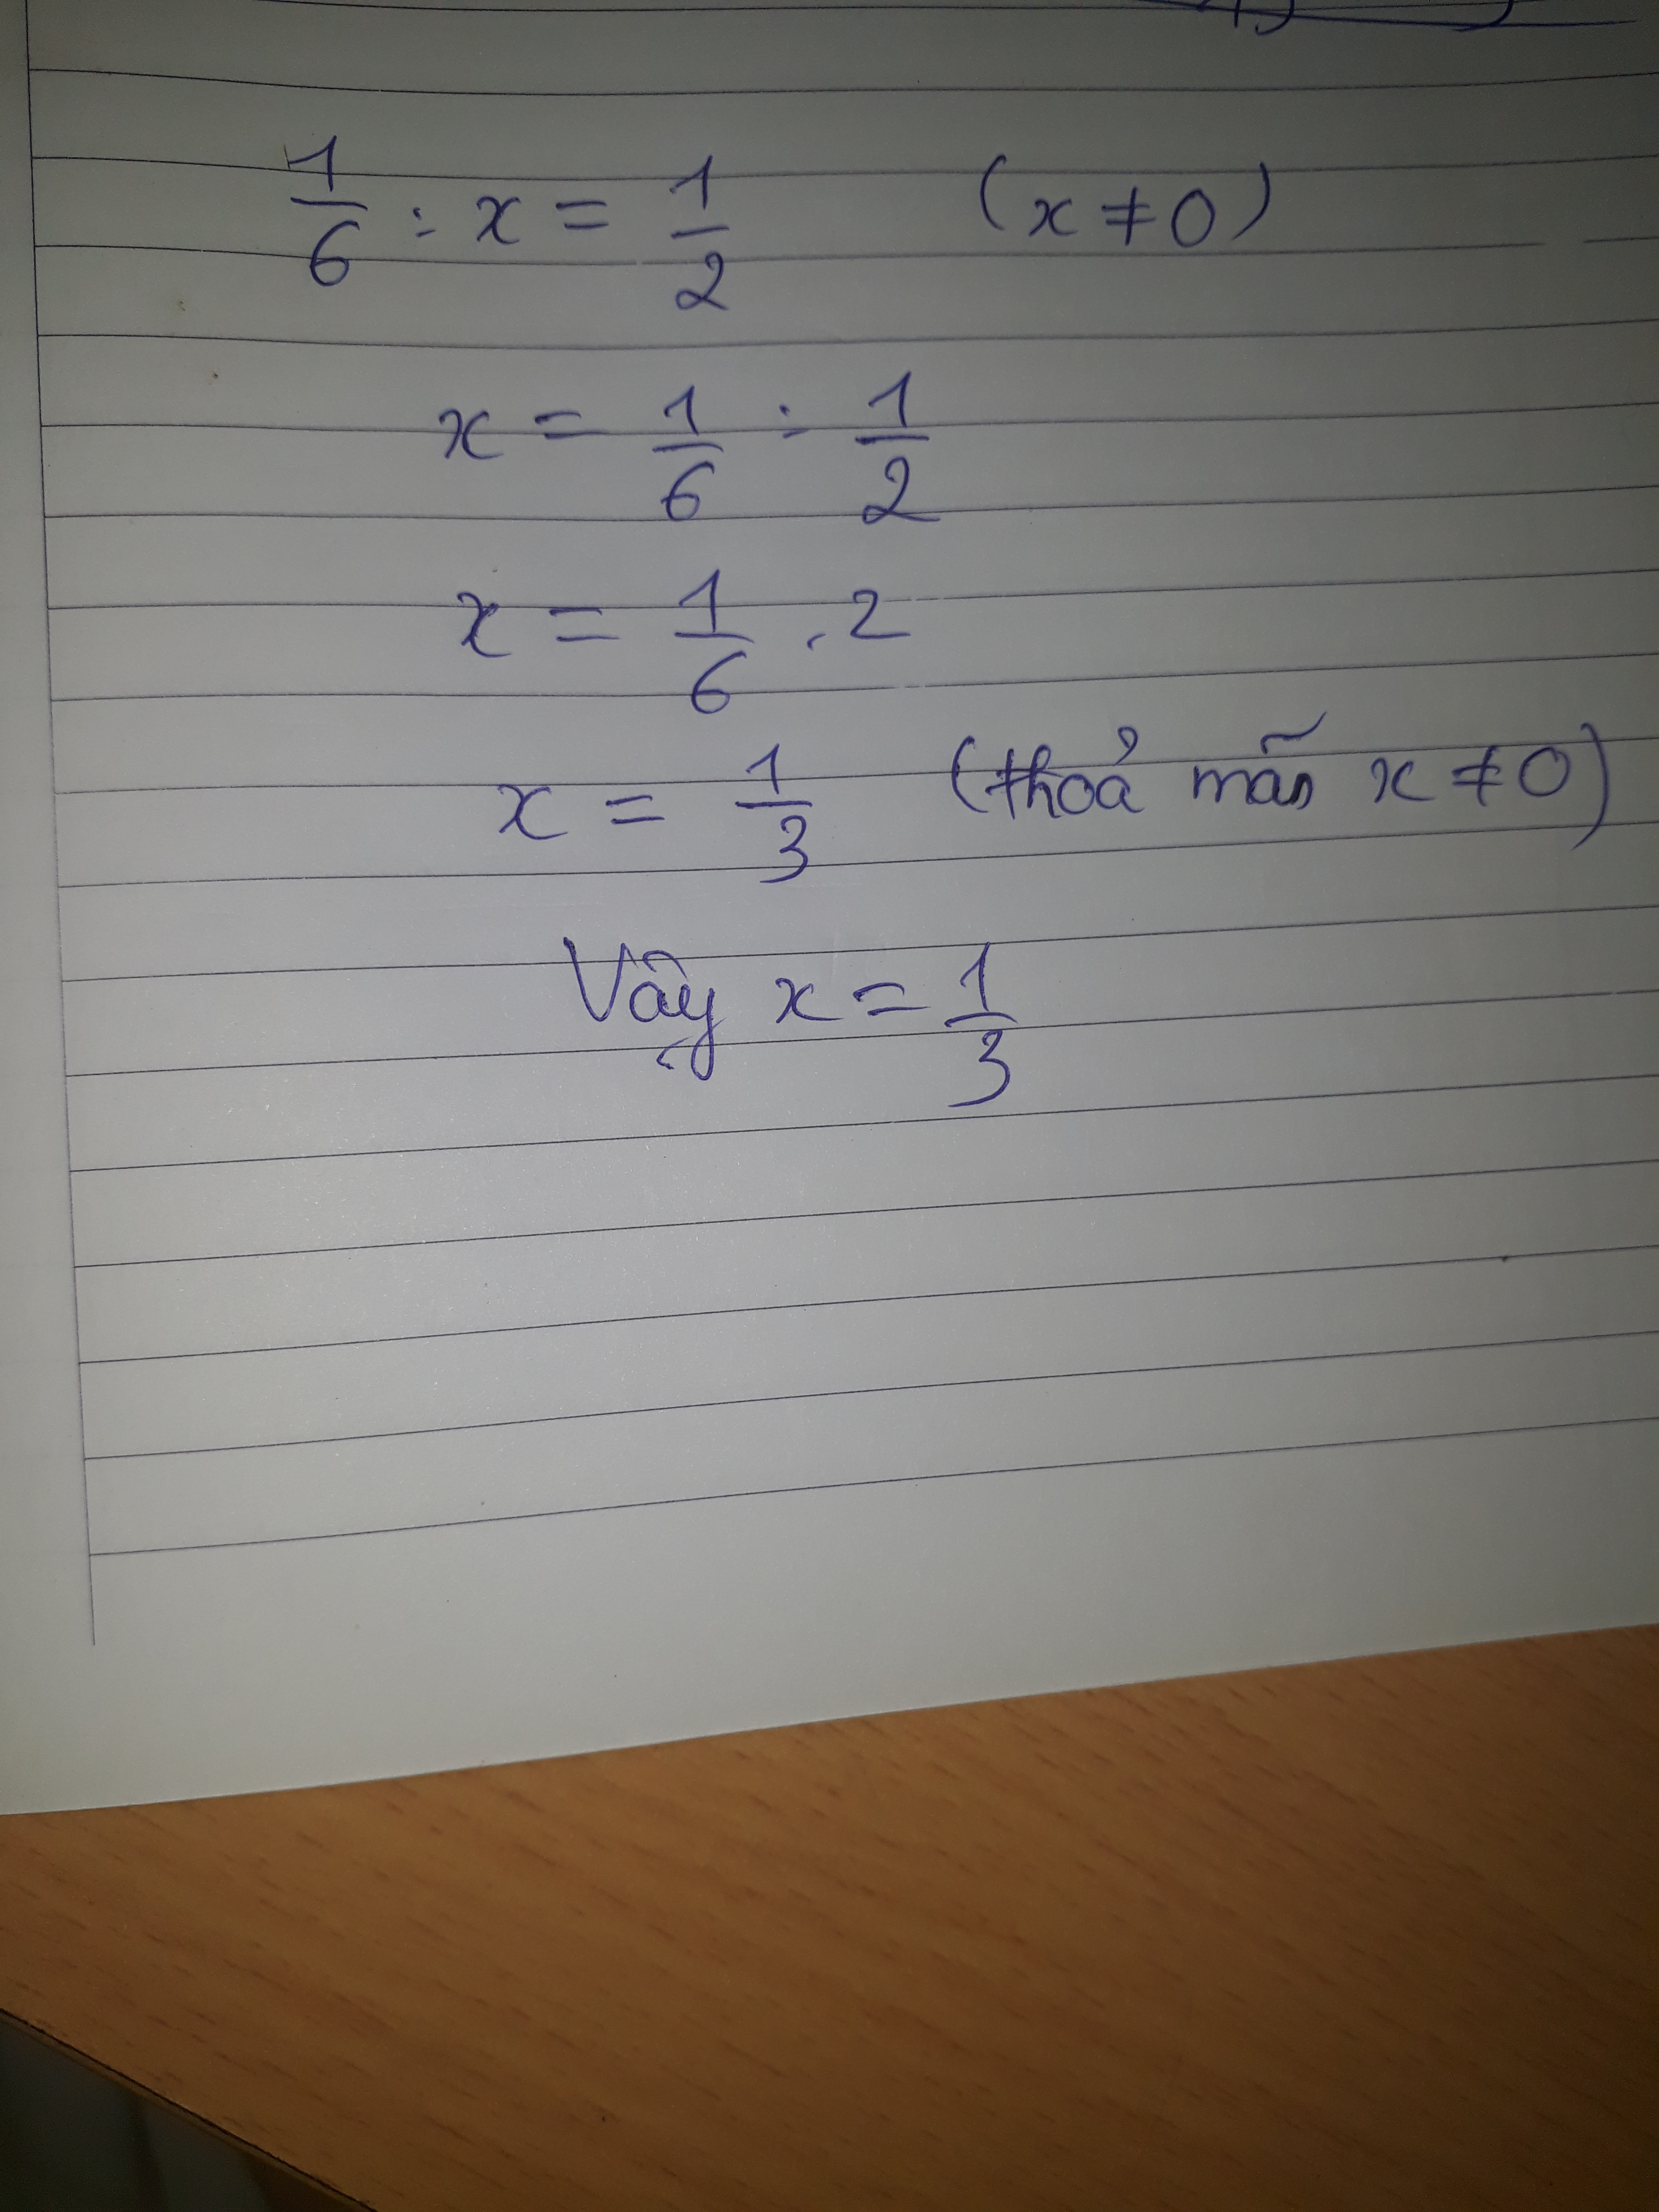 1/6 : x = 1/2 (x ≠ 0)
x = 1/6 : 1/2
x = 1/6 . 2
x = 1/3 (thoả mãn x ≠ 0)
Vậy x = 1/3